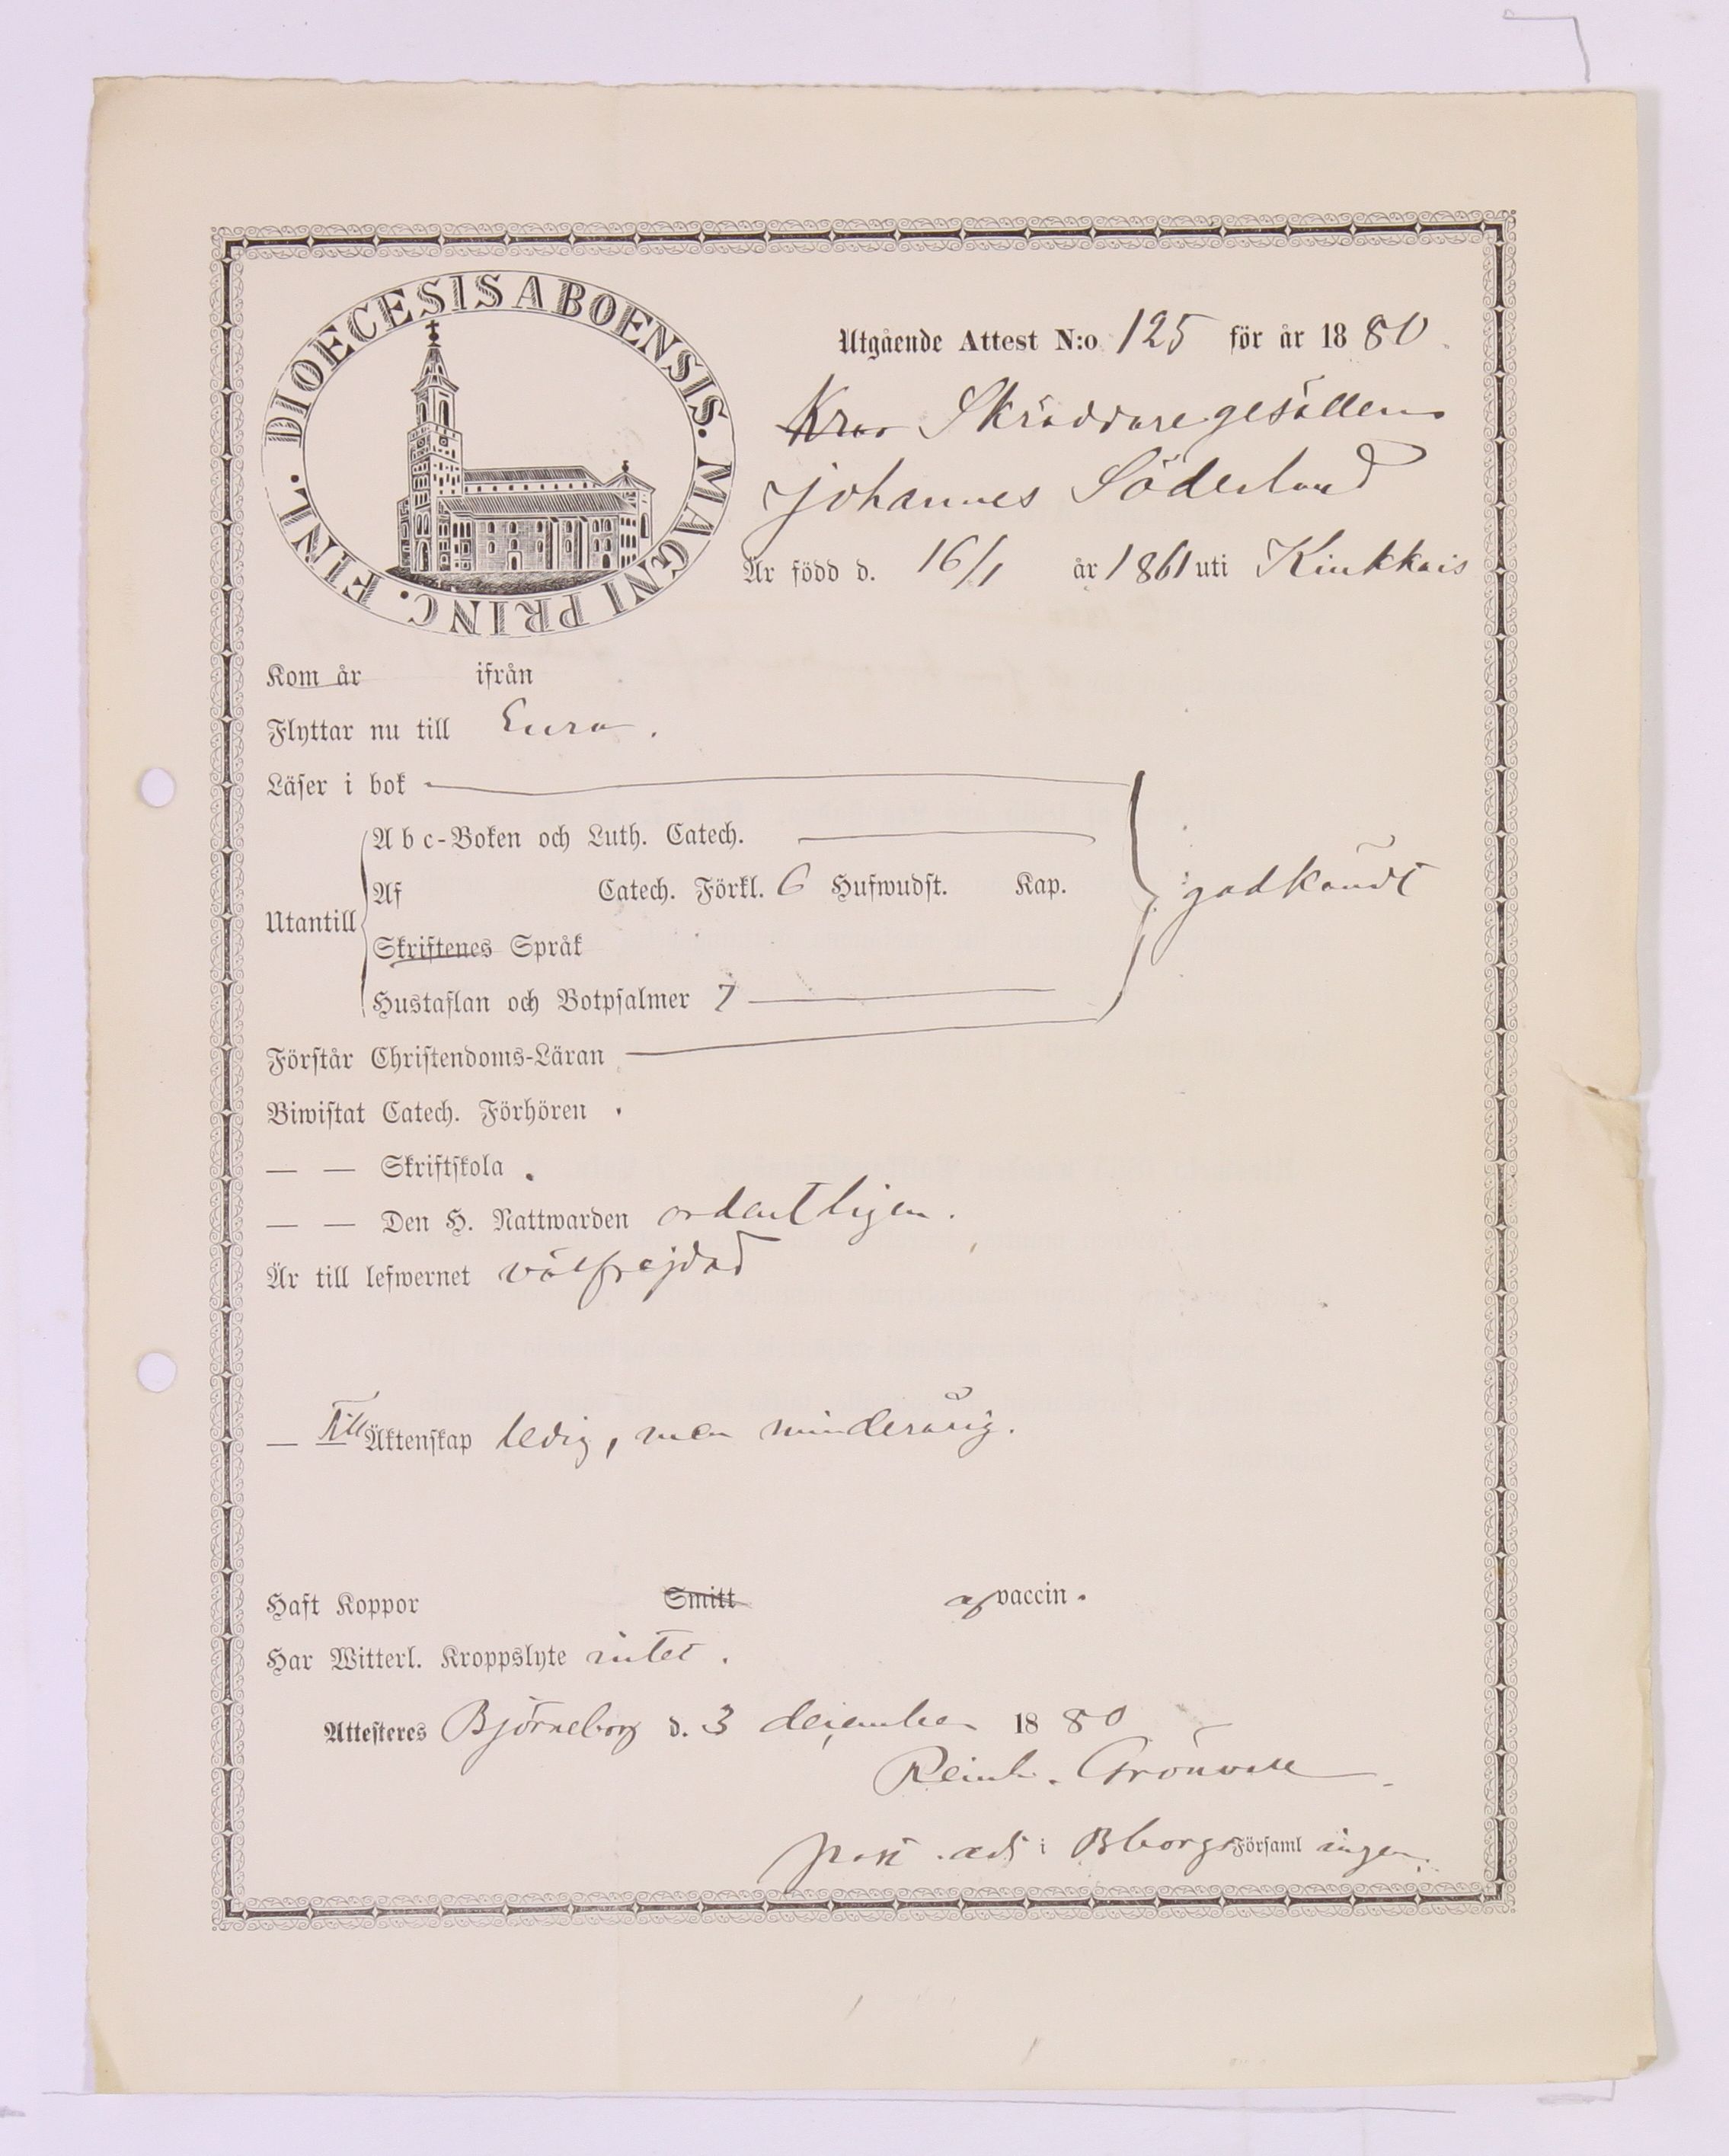 DIOECESIS ABOENSIS. MAGNI PRINC. FINL.
Utgående Attest N:o 125 för år 1880.
Skräddaregesällen
Johannes Söderlund
Är född d. 16/1 år 1861 uti Kiukkais
Kom år ifrån
Flyttar nu till Eura.
Läser i bok
A b c-Boken och Luth. Catech.
Af Catech. Förkl. 6 Hufwudst. Kap.
godkändt
Utantill
Skriftenes Språk
Hustaflan och Botpsalmer 7
Förstår Christendoms-Läran
Biwistat Catech. Förhören
— — Skriftskola
— — Den H. Nattwarden ordentligen.
Är till lefwernet välfrejdad
— Till Äktenskap ledig, men minderårig.
Haft Koppor Smitt af vaccin.
Har Witterl. Kroppslyte intet.
Attesteres Björneborg d. 3 december 1880
Reinh. Grönvall
past. adj. i Bborgs Församlingen.